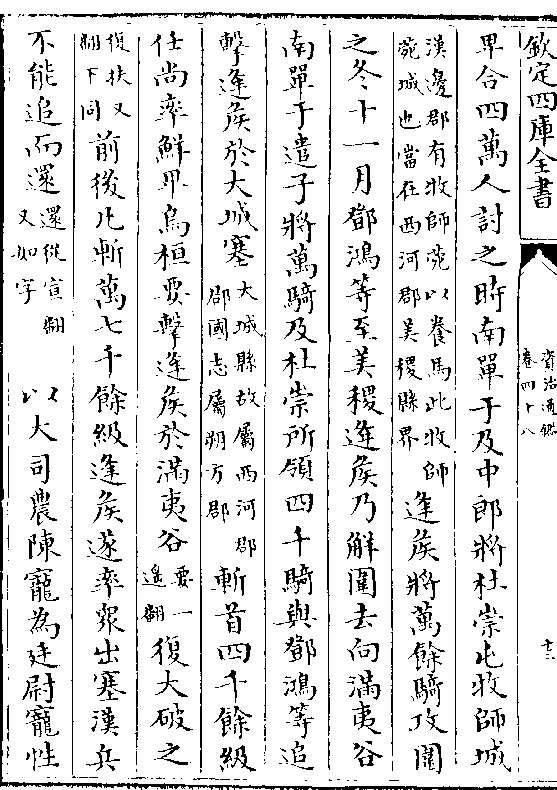 欽定四庫全書
資治通鑑
卷四十八
十三
畀合四萬人討之時南單于及中郎將杜崇屯牧師城
漢邊郡有牧師菀以養馬此牧師
菀城也當在西河郡美稷縣界
逢侯將萬餘騎攻圍
之冬十一月鄧鴻等至美稷逢侯乃解圍去向滿夷谷
南單于遣子將萬騎及杜崇所領四千騎與鄧鴻等追
擊逢侯於大城塞
大城縣故屬西河郡
郡國志屬朔方郡
斬首四千餘級
任尚率鮮卑烏桓要擊逢侯於滿夷谷
要一
遙翻
復大破之
復扶又
翻下同
前後凡斬萬七千餘級逢侯遂率衆出塞漢兵
不能追而還
還從宣翻
又如字
以大司農陳寵為廷尉寵性